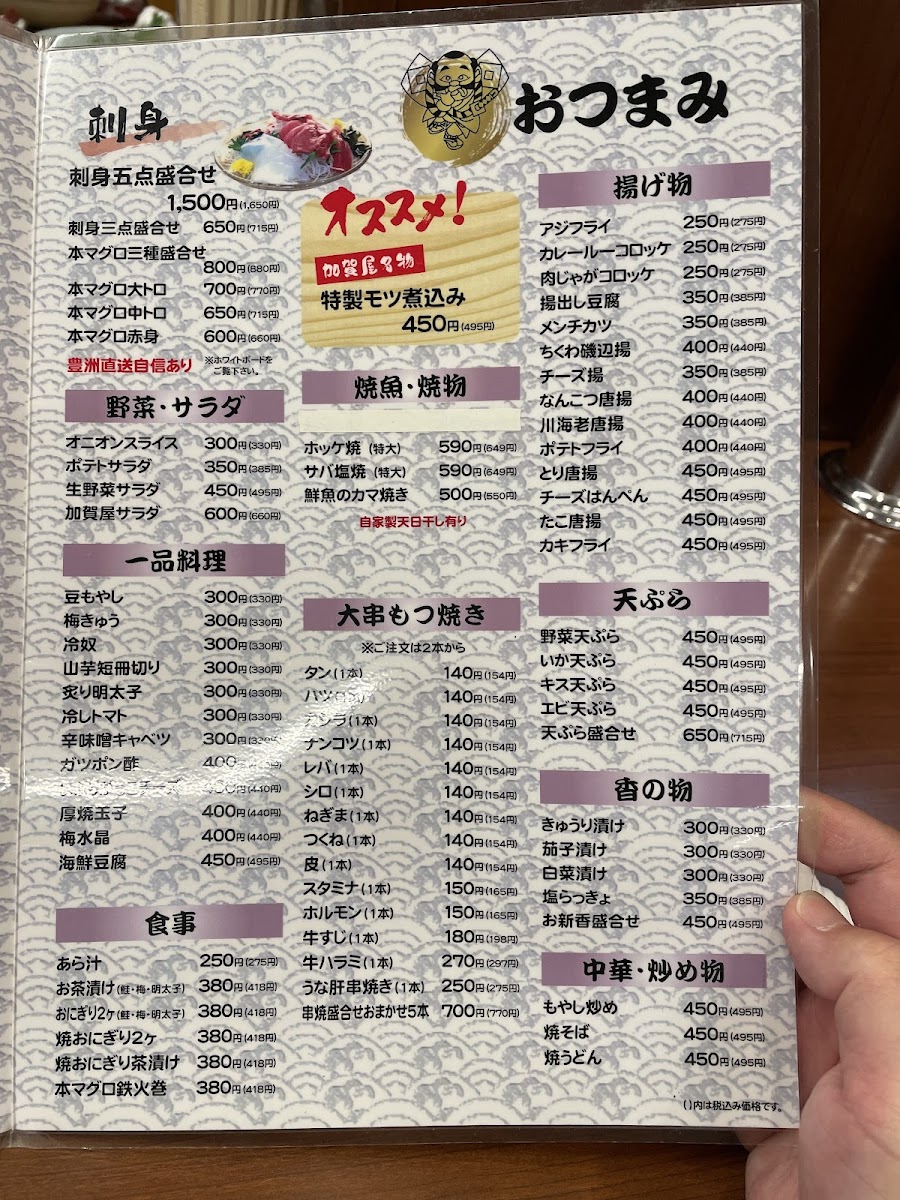 おつまみ
刺身
刺身五点盛合せ
1,500円(1,650円)
刺身三点盛合せ 650円(715円)
本マグロ三種盛合せ
800円(880円)
本マグロ大トロ 700円(770円)
本マグロ中トロ 650円(715円)
本マグロ赤身 600円(660円)
豊洲直送自信あり ※ホワイトボードを
ご覧下さい。
野菜・サラダ
オニオンスライス 300円(330円)
ポテトサラダ 350円(385円)
生野菜サラダ 450円(495円)
加賀屋サラダ 600円(660円)
一品料理
豆もやし 300円(330円)
梅きゅう 300円(330円)
冷奴 300円(330円)
山芋短冊切り 300円(330円)
炙り明太子 300円(330円)
冷しトマト 300円(330円)
辛味噌キャベツ 300円(330円)
ガツポン酢 400円
400円(440円)
厚焼玉子 400円(440円)
梅水晶 400円(440円)
海鮮豆腐 450円(495円)
食事
あら汁 250円(275円)
お茶漬け(鮭・梅・明太子) 380円(418円)
おにぎり2ヶ(鮭・梅・明太子) 380円(418円)
焼おにぎり2ヶ 380円(418円)
焼おにぎり茶漬け 380円(418円)
本マグロ鉄火巻 380円(418円)
オススメ!
加賀屋名物
特製モツ煮込み
450円(495円)
焼魚・焼物
ホッケ焼(特大) 590円(649円)
サバ塩焼(特大) 590円(649円)
鮮魚のカマ焼き 500円(550円)
自家製天日干し有り
大串もつ焼き
※ご注文は2本から
タン(1本) 140円(154円)
ハツ(1本) 140円(154円)
カシラ(1本) 140円(154円)
ナンコツ(1本) 140円(154円)
レバ(1本) 140円(154円)
シロ(1本) 140円(154円)
ねぎま(1本) 140円(154円)
つくね(1本) 140円(154円)
皮(1本) 140円(154円)
スタミナ(1本) 150円(165円)
ホルモン(1本) 150円(165円)
牛すじ(1本) 180円(198円)
牛ハラミ(1本) 270円(297円)
うな肝串焼き(1本) 250円(275円)
串焼盛合せおまかせ5本 700円(770円)
揚げ物
アジフライ 250円(275円)
カレールーコロッケ 250円(275円)
肉じゃがコロッケ 250円(275円)
揚出し豆腐 350円(385円)
メンチカツ 350円(385円)
ちくわ磯辺揚 400円(440円)
チーズ揚 350円(385円)
なんこつ唐揚 400円(440円)
川海老唐揚 400円(440円)
ポテトフライ 400円(440円)
とり唐揚 450円(495円)
チーズはんぺん 450円(495円)
たこ唐揚 450円(495円)
カキフライ 450円(495円)
天ぷら
野菜天ぷら 450円(495円)
いか天ぷら 450円(495円)
キス天ぷら 450円(495円)
エビ天ぷら 450円(495円)
天ぷら盛合せ 650円(715円)
香の物
きゅうり漬け 300円(330円)
茄子漬け 300円(330円)
白菜漬け 300円(330円)
塩らっきょ 350円(385円)
お新香盛合せ 450円(495円)
中華・炒め物
もやし炒め 450円(495円)
焼そば 450円(495円)
焼うどん 450円(495円)
( )内は税込み価格です。